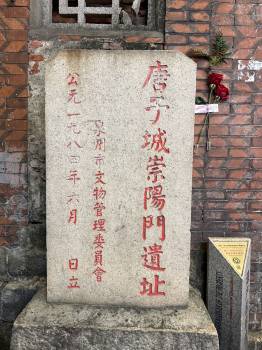 唐子城崇陽門遺址
泉州市文物管理委員會
公元一九八四年六月 日立